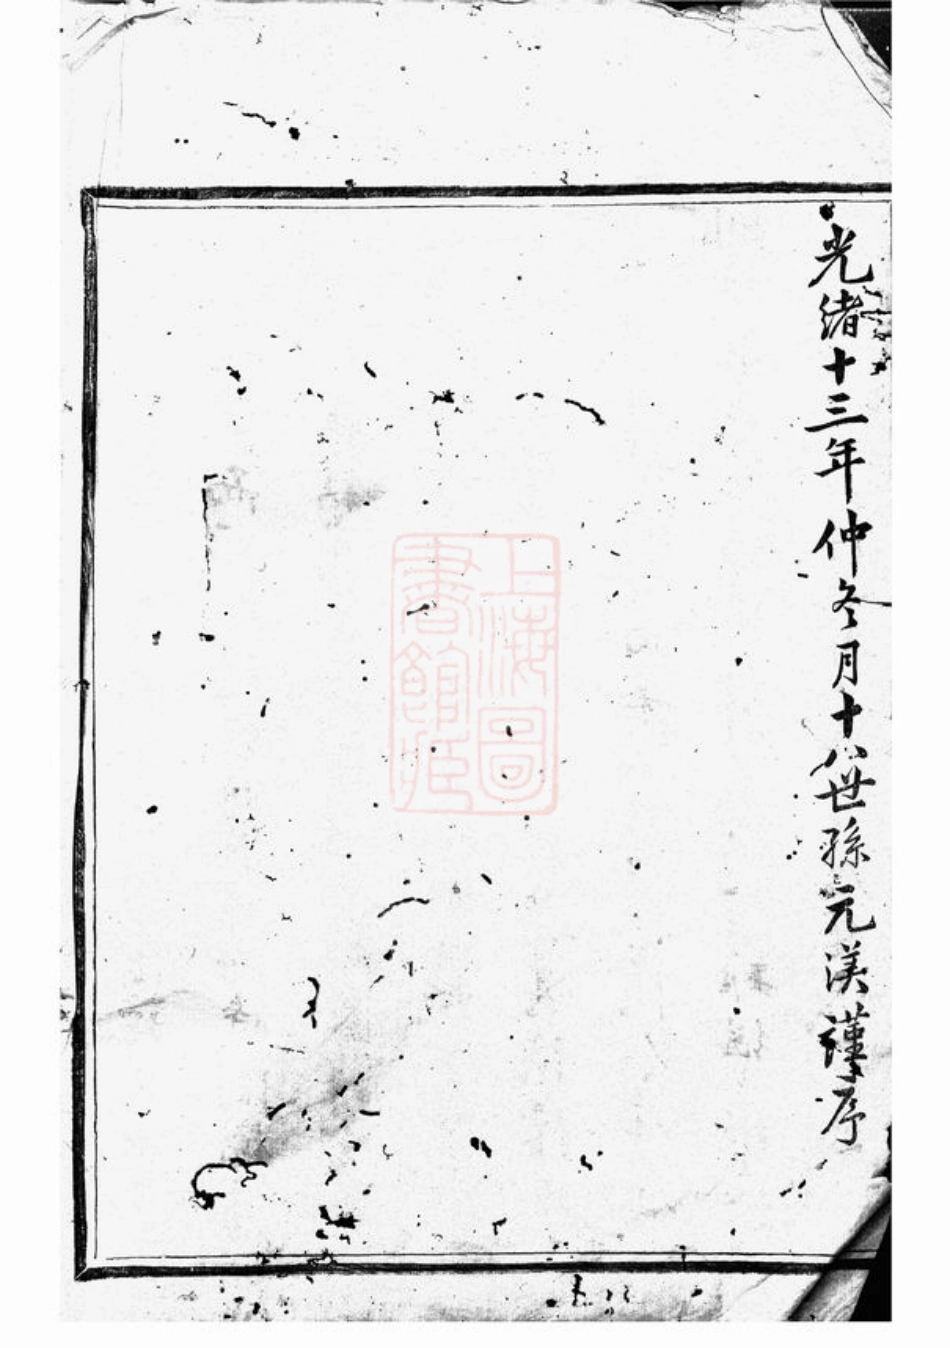 光緒十三年仲冬月十八世孫元渼謹序
上海圖
書館藏